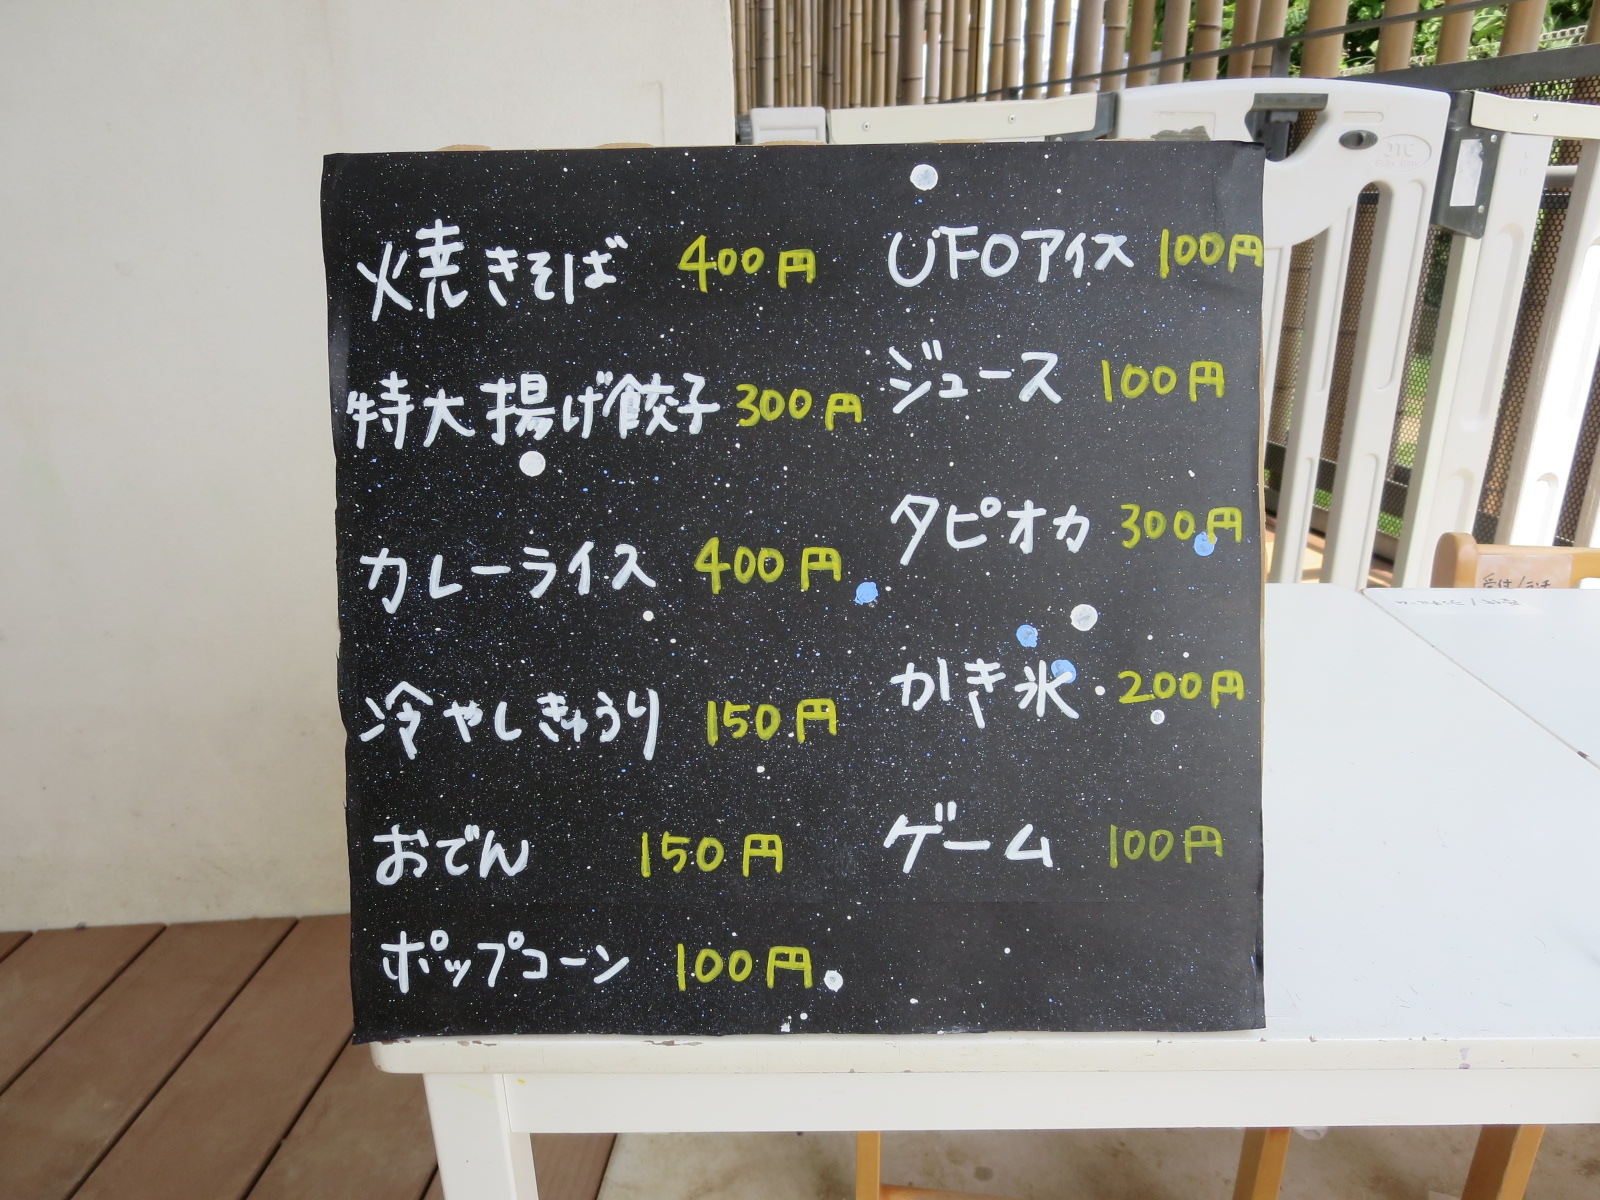 焼きそば 400円
特大揚げ餃子 300円
カレーライス 400円
冷やしきゅうり 150円
おでん 150円
ポップコーン 100円
UFOアイス 100円
ジュース 100円
タピオカ 300円
かき氷 200円
ゲーム 100円